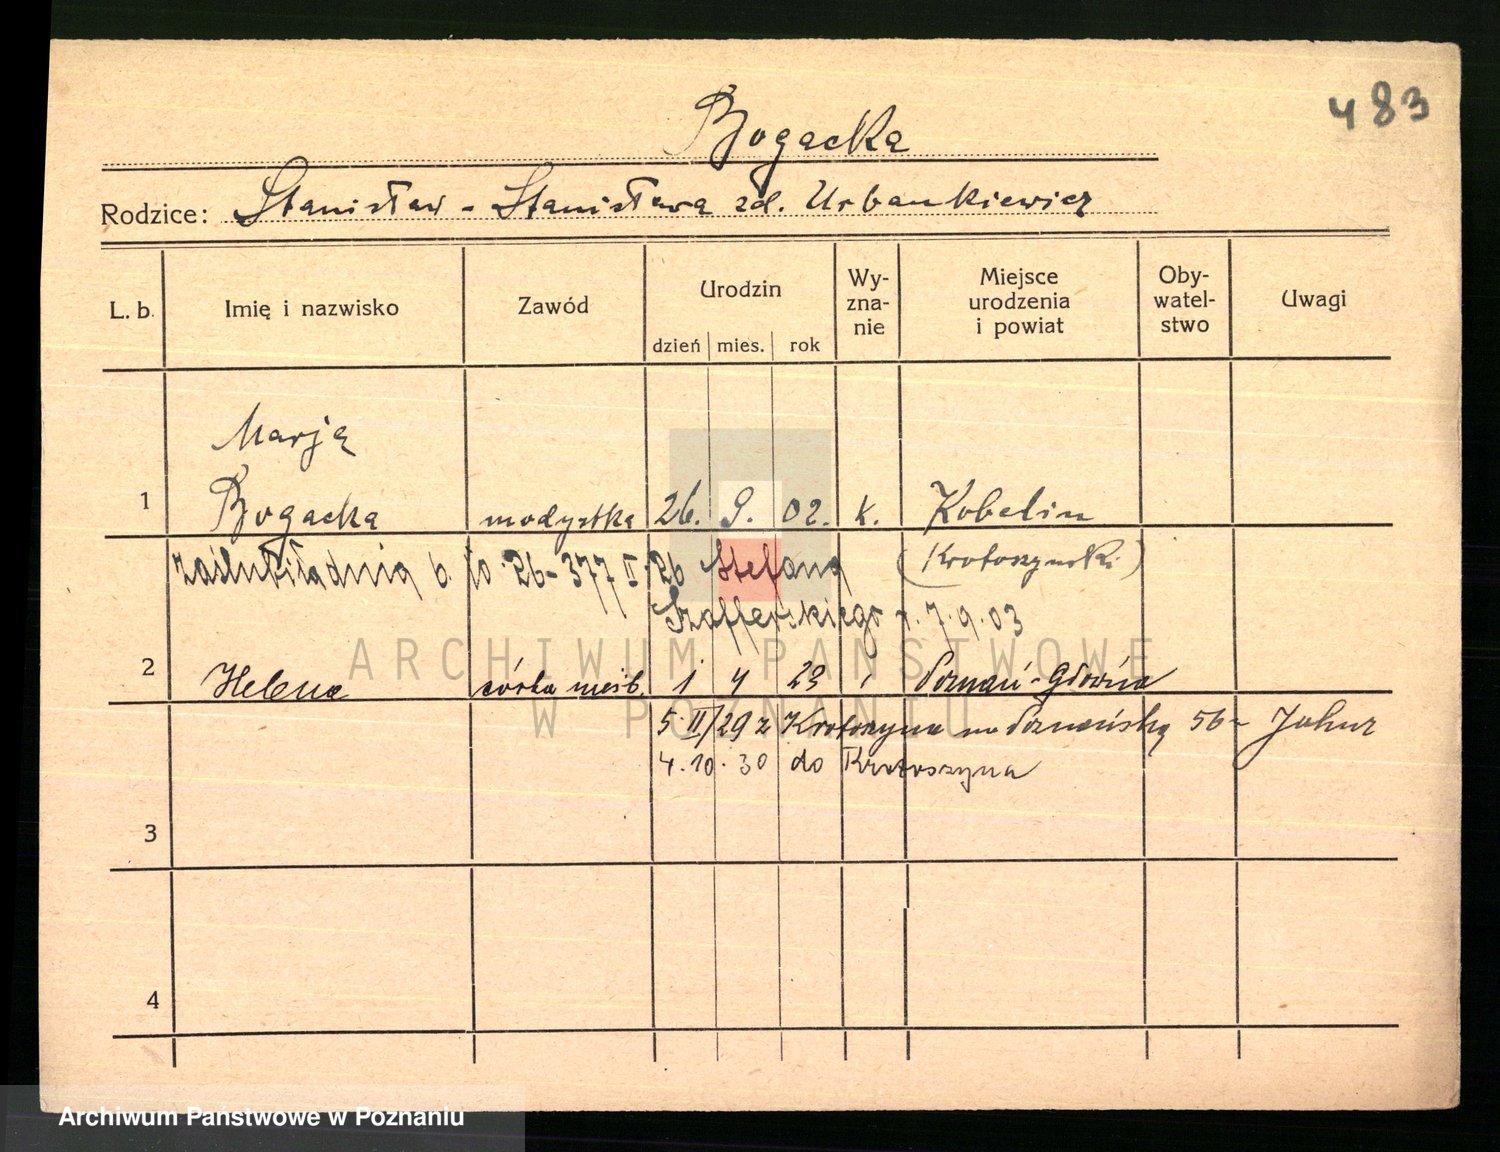 483
Bogacka
Rodzice: Stanisław - Stanisława zd. Urbankiewicz
L. b. Imię i nazwisko Zawód Urodzin Wy- zna- nie Miejsce urodzenia i powiat Oby- watel- stwo Uwagi
dzień mies. rok
Marja
1 Bogacka modystka 26. 9. 02. k. Kobelin
zaślubiła dnia 6. 26 - 377 II. 26 Stefana (Krotoszyński)
Szafferskiego r. 7.9.03
ARCHIWUM PAŃSTWOWE
2 Helena córka nieśb. 1 4 23 Poznań-Główna
W POZNANIU
5.II/29 z Krotoszyna na Poznańską 56 -
4.10.30 do Krotoszyna
3
4
Archiwum Państwowe w Poznaniu